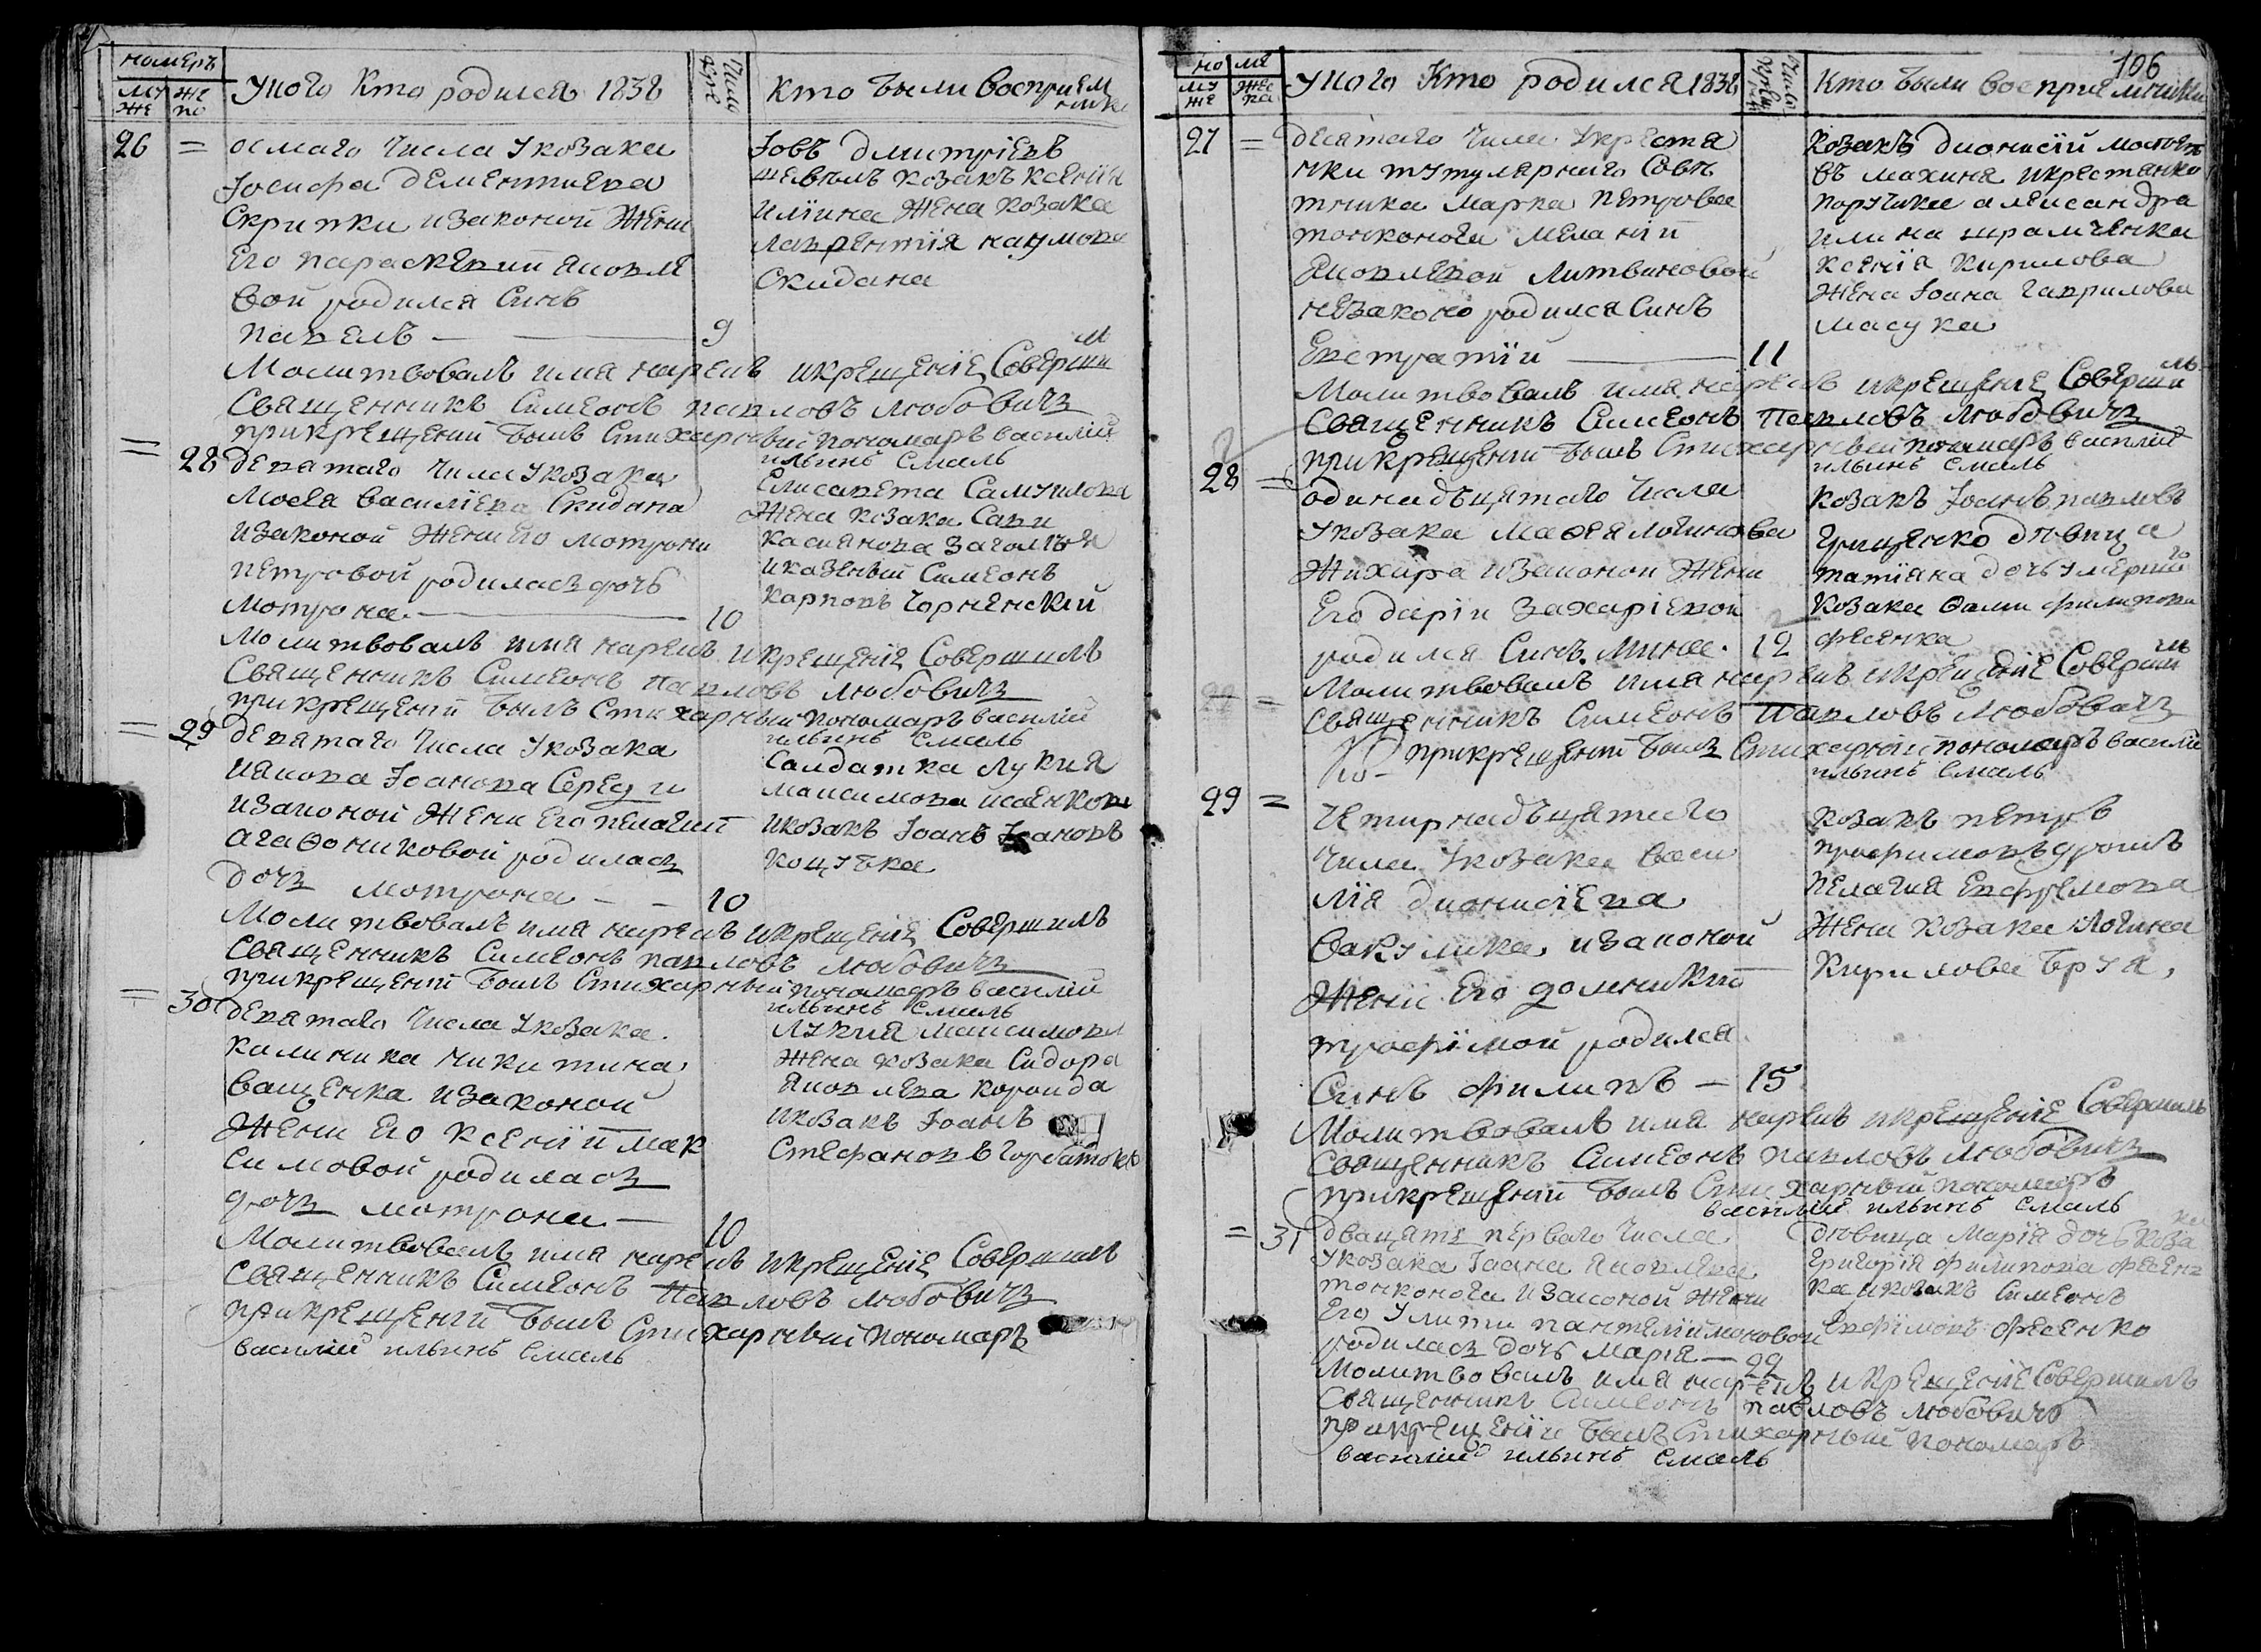 номеръ
му же
же но
У кого Кто родился 1838
Число Кре
Кто были восприемники
26 = осмаго Числа У козака
Іосифа дементиева
Скрипки и законой Жени
Его параскевии Яковле
вой родился Синъ
павелъ — 9
Іовъ дмитріевъ
козакъ ксенія
иліина Жена козака
лаврентія наумова
Скидана
Молитвовалъ имя нарекъ и крещеніе Совершил
Священникъ Симеонъ павловъ любовичъ
при крещеніи былъ Стихарный пономаръ василій
ильинъ Смаль
= 28 девятаго Числа У козака
Мосея василіева Скидана
и законой Жени Его мотрони
петровой родилась дочь
мотрона — 10
Елисавета Самуилова
Жена козака Сави
касиянова
и казеный Симеонъ
карповъ Чорненскій
Молитвовалъ имя нарекъ и крещеніе Совершилъ
Священникъ Симеонъ павловъ любовичъ
при крещеніи былъ Стихарный пономаръ василій
ильинъ Смаль
= 29 девятаго Числа У козака
иякова Іоанова Середи
и законой Жени Его пелагии
агафониковой родилась
дочь мотрона — 10
Салдатка лукия
максимова исаенкова
и козакъ Іоанъ Іоановъ
коцубка
Молитвовалъ имя нарекъ и крещеніе Совершилъ
Священникъ Симеонъ павловъ любовичъ
при крещеніи былъ Стихарный пономаръ василій
ильинъ Смаль
= 30 девятаго Числа У козака
калиника никитина
ващенка и законой
Жени Его ксеніи мак
симовой родилась
дочь мотрона — 10
лукия максимова
Жена козака Сидора
Яковлева
и козакъ Іоанъ
Стефановъ
Молитвовалъ имя нарекъ и крещеніе Совершилъ
Священникъ Симеонъ павловъ любовичъ
при крещеніи былъ Стихарный пономаръ
василий ильинъ Смаль
106
но ме
му же
жес ка
У кого Кто родился 1838
Числ Креще
Кто были восприемники
27 = десятаго Числа У крестя
нки титулярнаго Совѣ
тника марка петрова
тонконога меланіи
Яковлевой литвиновой
незаконо родился Синъ
Евстратій — 11
козакъ дионисій
въ махиня и крестянка
поручика александра
илина шрамченка
ксенія кирилова
Жена Іоана гаврилова
масука
Молитвовалъ имя нарекъ и крещеніе Совершилъ
Священникъ Симеонъ павловъ любовичъ
при крещеніи былъ Стихарный пономаръ василій
ильинъ Смаль
28 = одинадъцятаго Числа
У козака мафея логинова
Жихара и законой Жени
Его даріи захаріевой
родился Синъ Мина. 12
козакъ Іоанъ павловъ
грищенко дѣвица
татіяна дочь умершаго
козака Фоми филипова
фесенка
Молитвовалъ имя нарекъ и крещеніе Совершилъ
Священникъ Симеонъ павловъ любовичъ
при крещеніи былъ Стихарный пономаръ василій
ильинъ Смаль
29 = Четирнадъцятаго
Числа У козака васи
лія дионисіева
вакулика, и законой
Жени Его доминикии
трофімой родился
Синъ филипъ — 15
козакъ петръ
трофимовъ
пелагия Евфремова
Жени козака логина
Кирилова
Молитвовалъ имя нарекъ и крещеніе Совершилъ
Священникъ Симеонъ павловъ любовичъ
при крещеніи былъ Стихарный пономаръ
василій ильинъ Смаль
= 31 двацять перваго Числа
У козака Іоана Яковлева
тонконога и законой Жени
Его Улити пантелііимоновой
родилась дочь Марія — 22
дѣвица Марія дочь козака
григорія филипова фесен
ка и козакъ Симеонъ
Евфімовъ фесенко
Молитвовалъ имя нарекъ и крещеніе Совершилъ
Священникъ Симеонъ павловъ любовичъ
при крещеніи былъ Стихарный пономаръ
василий ильинъ Смаль